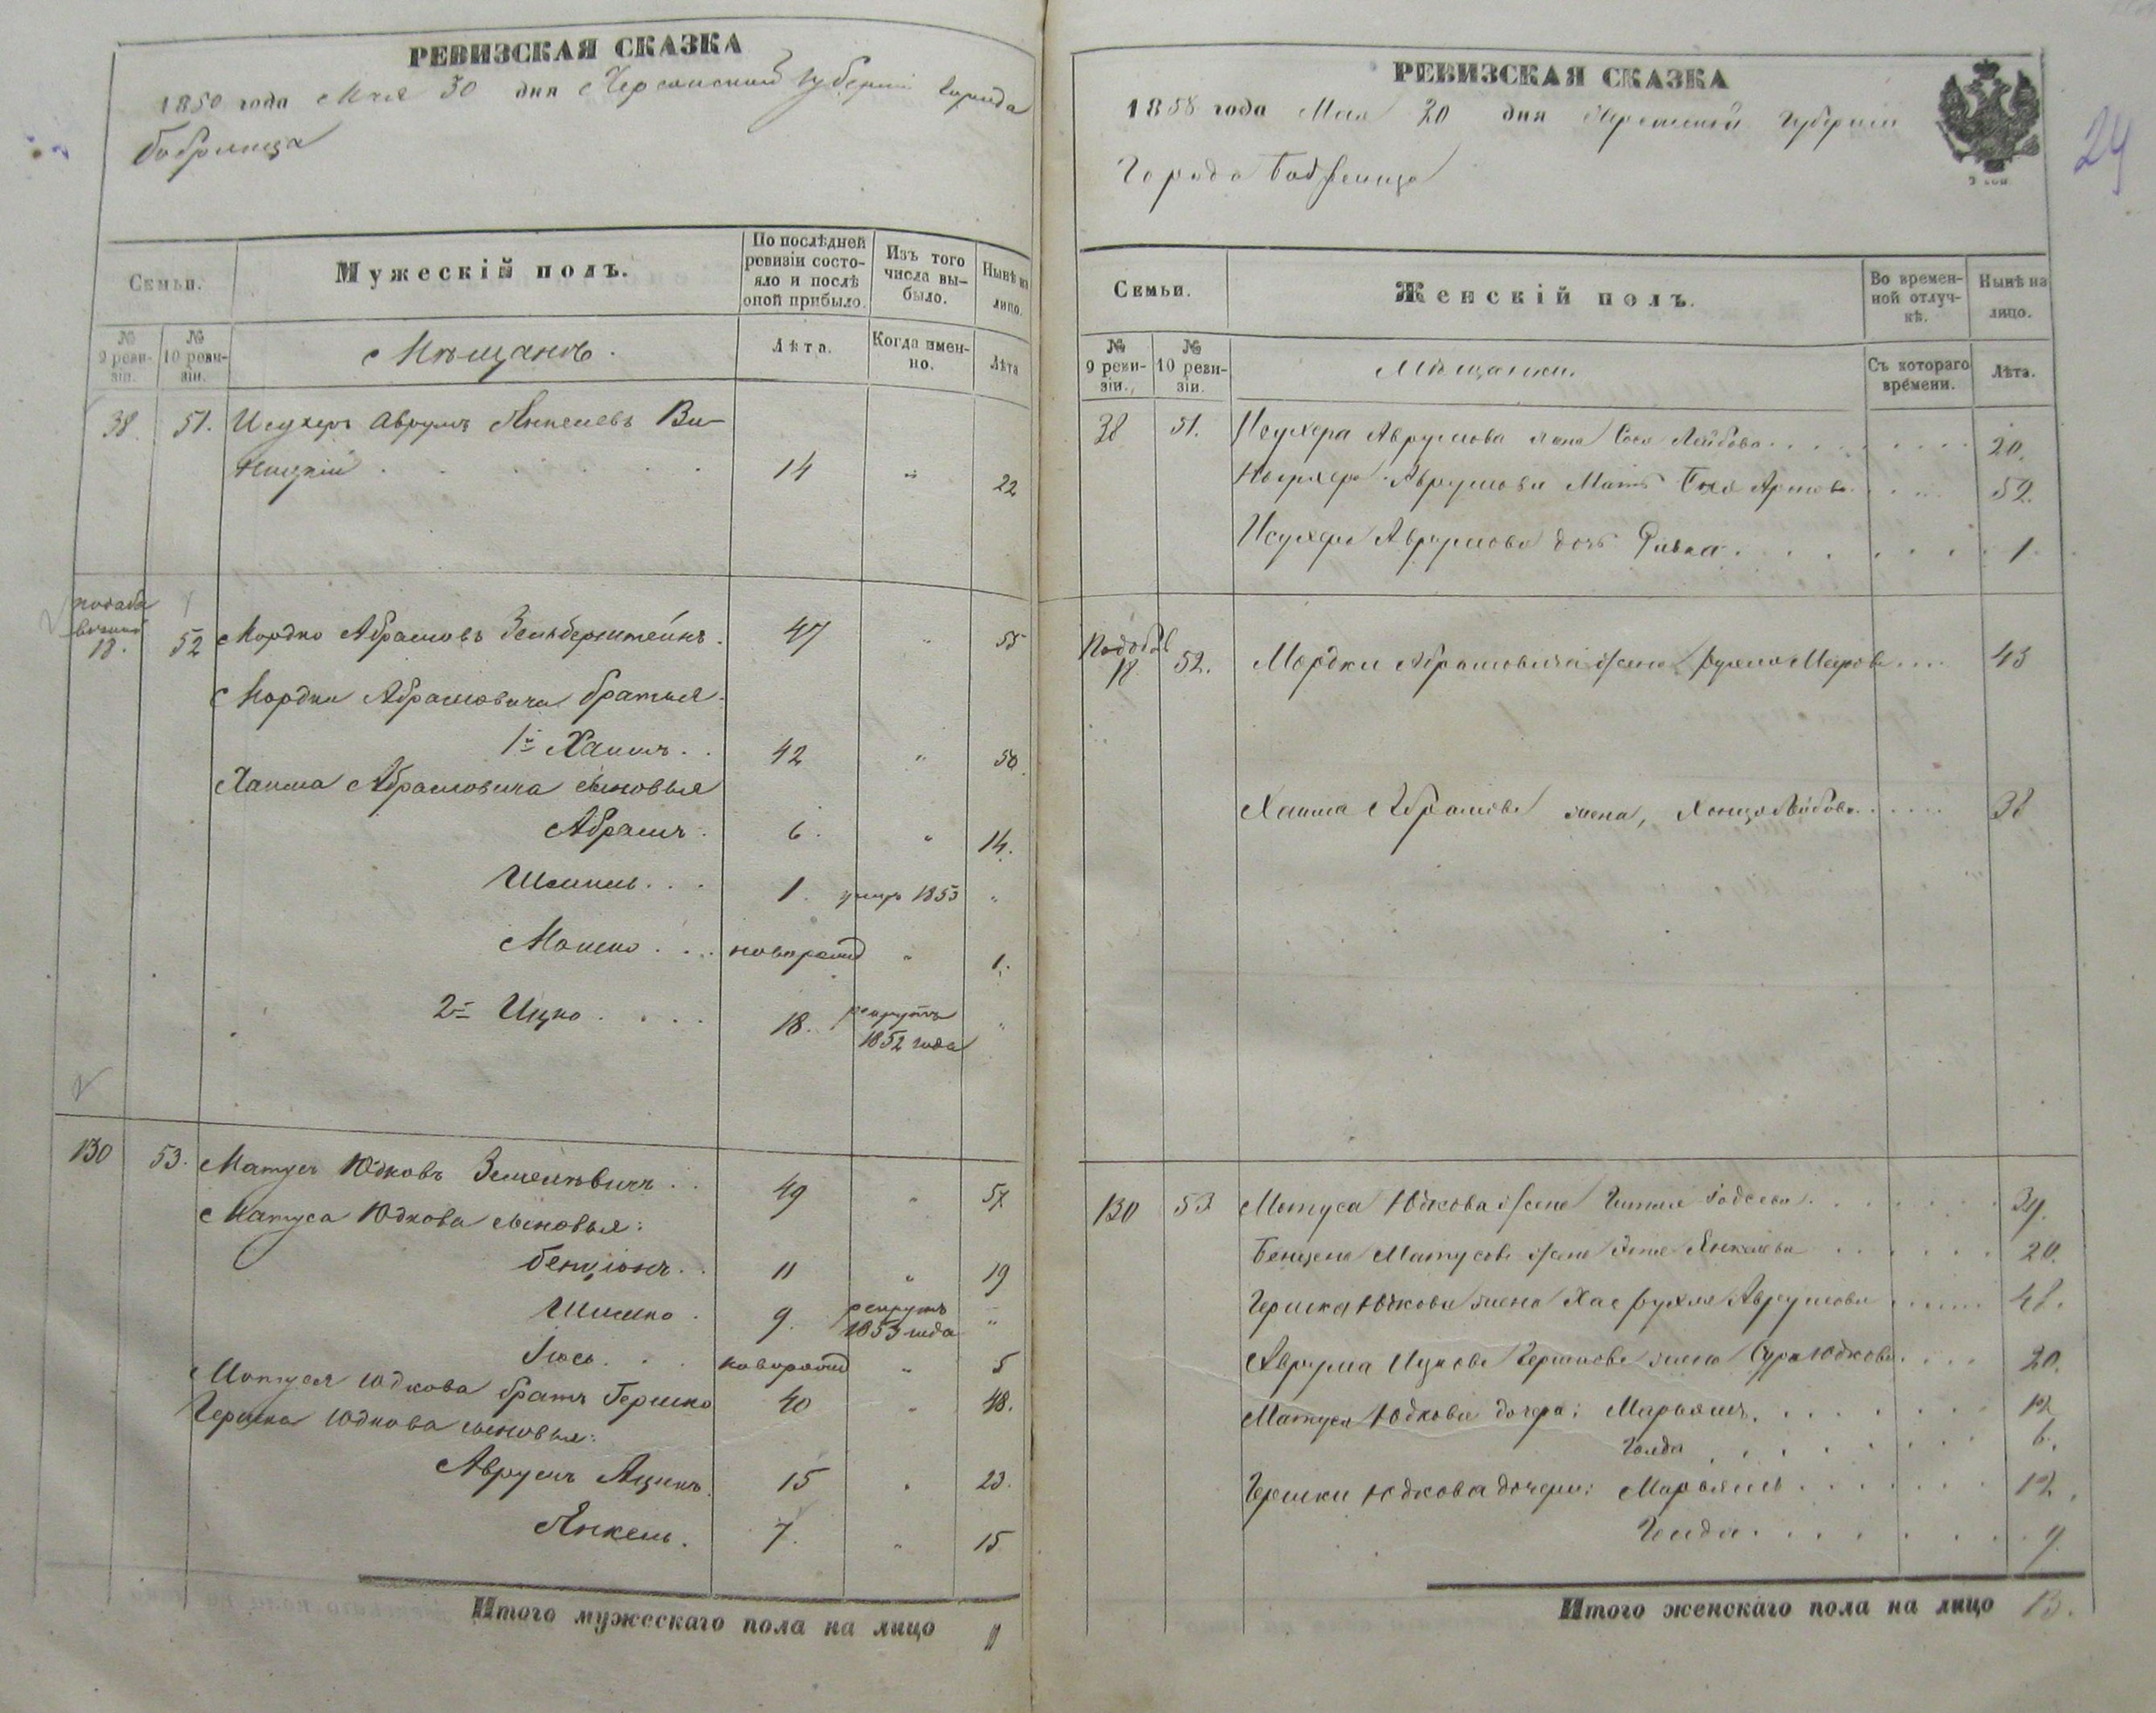 РЕВИЗСКАЯ СКАЗКА
1858 года Мая 30 дня Херсонской Губернiи города
Бобринца
Семьи.
Мужескiй полъ.
По послѣдней ревизiи состо-
яло и послѣ оной прибыло.
Изъ того числа вы-
было.
Нынѣ на лицо.
№ 9 реви-
зiи.
№ 10 реви-
зiи.
Мѣщане.
Лѣта.
Когда имен-
но.
Лѣта
38. 51. Исухеръ Аврумъ Янкелевъ Ви-
ницкiй 14 " 22
18. 52 Мордко Абрамовъ Зильберштейнъ. 47 " 55
Мордки Абрамовича братья.
1й Хаимъ. 42 " 50.
Хаима Абрамовича сыновья
Абрамъ. 6. " 14.
Шмиль. 1. умеръ 1853 "
Мошко новорожд " 1.
2й Ицко 18. рекрутъ 1852 года "
130 53. Матусъ Юдковъ 49 " 57
Матуса Юдкова сыновья:
Бенцiонъ 11 " 19
Шимко 9. рекрутъ 1853 года "
Iось новорожд " 5
Матуса Юдкова братъ Гершко 40 " 48.
Гершка Юдкова сыновья:
Аврумъ Ицикъ 15 " 23.
Янкель. 7. " 15
Итого мужескаго пола на лицо 11
РЕВИЗСКАЯ СКАЗКА
1858 года Мая 30 дня Херсонской Губернiи
Города Бобринца
24
Семьи.
Женскiй полъ.
Во времен-
ной отлуч-
кѣ.
Нынѣ на лицо.
№ 9 реви-
зiи.
№ 10 реви-
зiи.
Мѣщанки.
Съ котораго времени.
Лѣта.
38 51. Исухера Аврумова жена Сося Лейбова 20.
Исухера Аврумова Мать 52.
Исухера Аврумова дочь Ривка 1
18 52. Мордки Абрамовича жена Рухля Меерова 43
Хаима Абрамова жена, Лейбова 38
130 53 Матуса Юдкова жена Гитля 39.
Бенцiона Матусова жена Янкелева 20.
Гершка Юдкова жена Хае Рухля Аврумова 48.
Аврума Ицкова Гершкова жена Сура Юдкова 20.
Матуса Юдкова дочери: Марьямъ 12
Голда 6.
Гершки Юдкова дочери: Марьямъ 12.
Голда 9.
Итого женскаго пола на лицо 13.